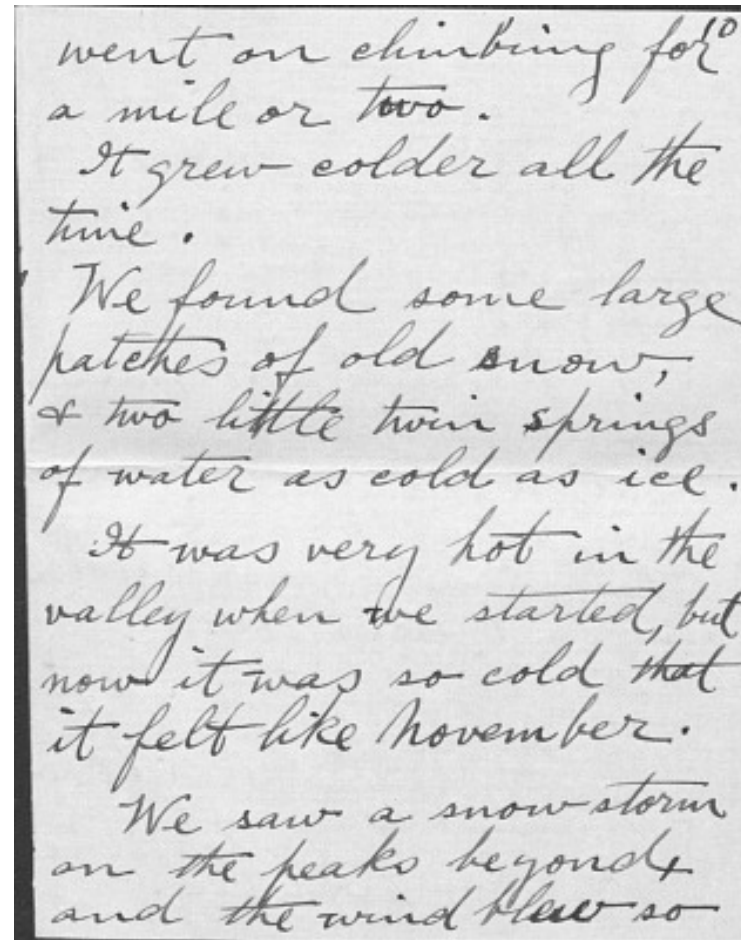 10
went on climbing for
a mile or two.
It grew colder all the
time.
We found some large
patches of old snow,
& two little twin springs
of water as cold as ice.
It was very hot in the
valley when we started, but
now it was so cold that
it felt like November.
We saw a snow storm
on the peaks beyond,
and the wind blew so